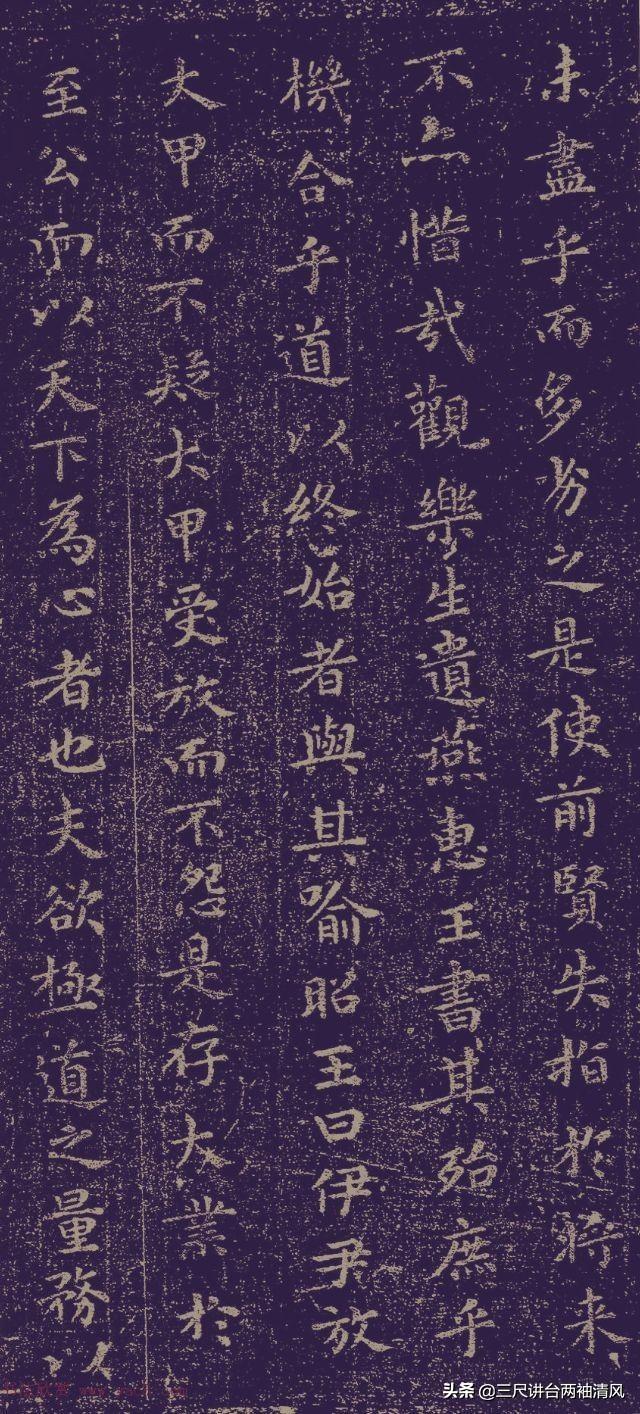 未盡乎而多劣之是使前賢失指於將来
不亦惜哉觀樂生遺燕惠王書其殆庶乎
機合乎道以終始者與其喻昭王曰伊尹放
大甲而不疑大甲受放而不怨是存大業於
至公而以天下為心者也夫欲極道之量務以
头条 @三尺讲台两袖清风